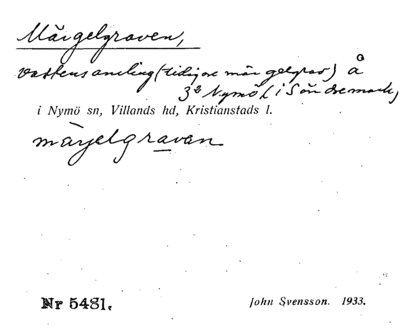 Märgelgraven,
vattensamling (tidigare märgelgrav) å
3ª Nymö, i Söndremark,
i Nymö sn, Villands hd, Kristianstads l.
märjelgravan
Nr 5481.
John Svensson. 1933.